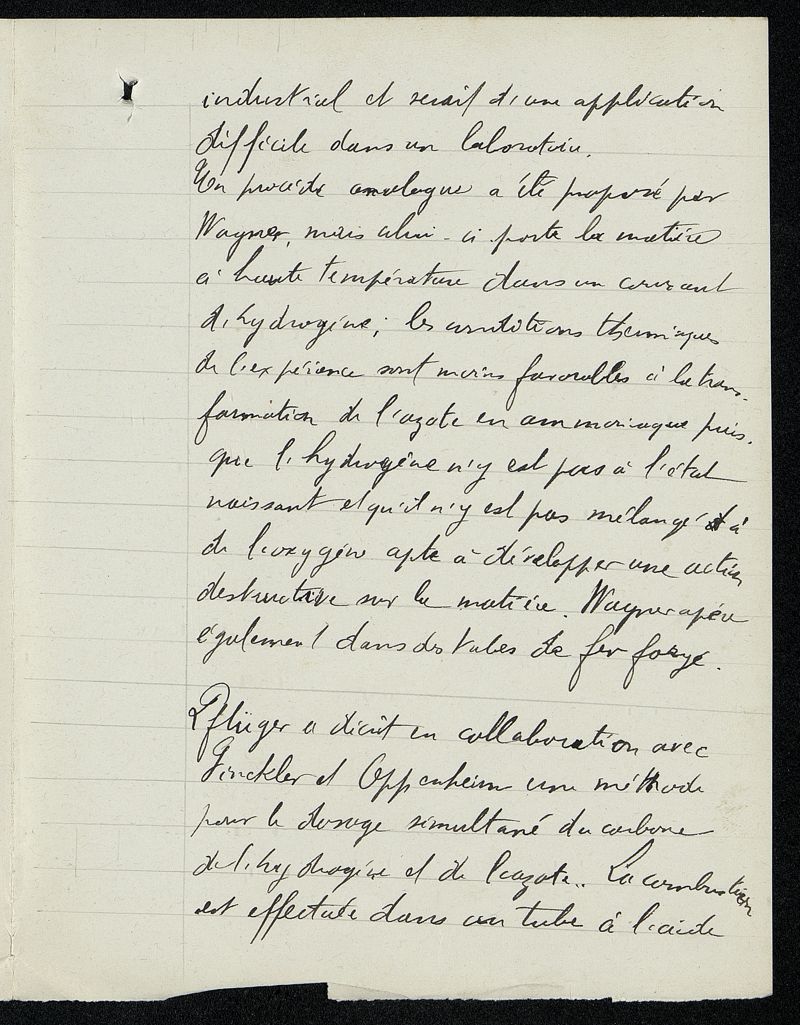 industriel et serait d'une application
difficile dans un laboratoire.
Un procédé analogue a été proposé par
Wagner, mais celui-ci porte la matière
à haute température dans un courant
d'hydrogène; les conditions thermiques
de l'expérience sont moins favorables à la trans-
formation de l'azote en ammoniaque puis-
que l'hydrogène n'y est pas à l'état
naissant et qu'il n'y est pas mélangé à
de l'oxygène apte à développer une action
destructive sur la matière. Wagner opéra
également dans des tubes de fer forgé.
Pflüger a décrit en collaboration avec
Finckler et Oppenheim une méthode
pour le dosage simultané du carbone
de l'hydrogène et de l'azote.. La combustion
est effectuée dans un tube à l'aide